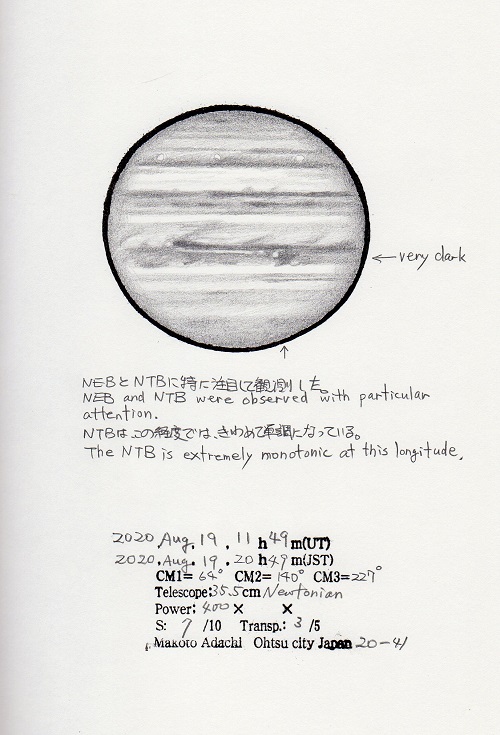 ←very dark
NEBとNTBに特に注目して観測した。
NEB and NTB were observed with particular
attention.
NTBは、この経度では、きわめて単調になっている。
The NTB is extremely monotonic at this longitude.
2020,Aug. 19 , 11 h 49 m(UT)
2020,Aug. 19 , 20 h 49 m(JST)
CM1= 64° CM2= 140° CM3=227°
Telescope:35.5cm Newtonian
Power: 400 × ×
S: 7 /10 Transp.: 3 /5
Makoto Adachi Ohtsu city Japan 20-41